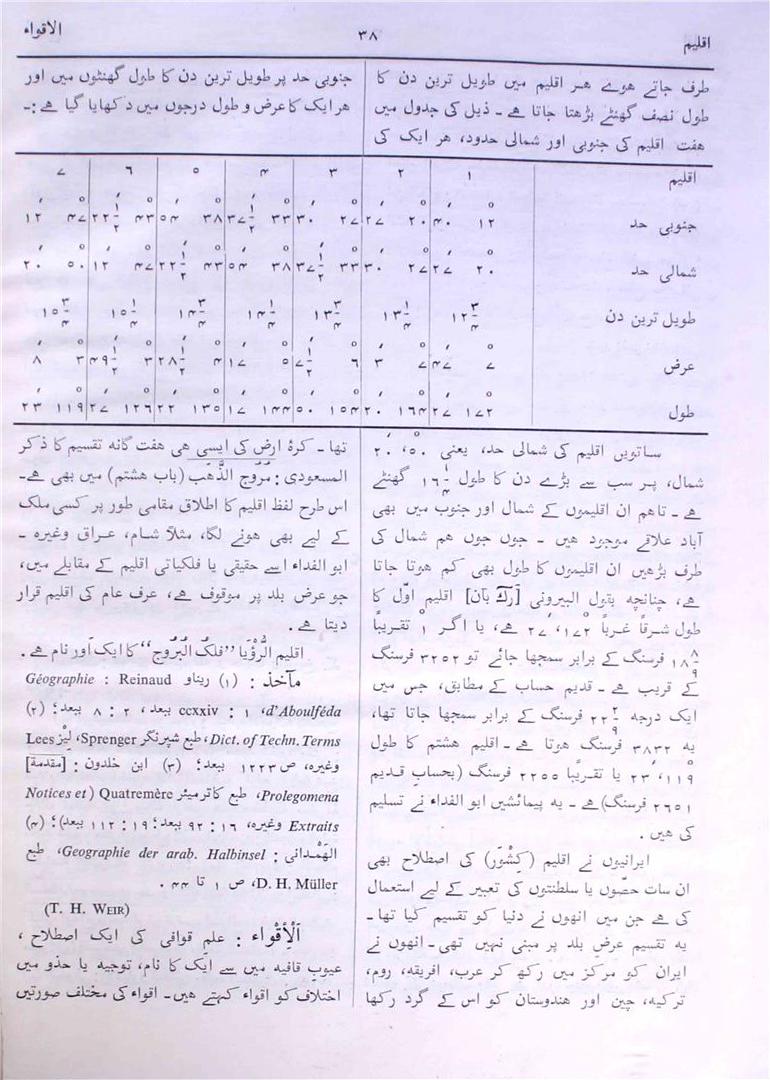 اقلیم
۳۸
الاقواء
طرف جاتے ھوے ھر اقلیم میں طویل ترین دن کا
طول نصف گھنٹے بڑھتا جاتا ھے۔ ذیل کی جدول میں
ھفت اقلیم کی جنوبی اور شمالی حدود، ھر ایک کی
جنوبی حد پر طویل ترین دن کا طول گھنٹوں میں اور
ھر ایک کا عرض و طول درجوں میں دکھایا گیا ھے :۔
اقلیم ۱ ۲ ۳ ۴ ۵ ۶ ۷
جنوبی حد ۱۲° ۴۰′ ۲۰° ۲۷′ ۲۷° ۳۰′ ۳۳° ۳۷ ۱/۲′ ۳۸° ۵۴′ ۴۳° ۲۲ ۱/۲′ ۴۷° ۱۲′
شمالی حد ۲۰° ۲۷′ ۲۷° ۳۰′ ۳۳° ۳۷ ۱/۲′ ۳۸° ۵۴′ ۴۳° ۲۲ ۱/۲′ ۴۷° ۱۲′ ۵۰° ۲۰′
طویل ترین دن ۱۲ ۳/۴ ۱۳ ۱/۴ ۱۳ ۳/۴ ۱۴ ۱/۴ ۱۴ ۳/۴ ۱۵ ۱/۴ ۱۵ ۳/۴
عرض ۷° ۴۷′ ۷° ۳′ ۶° ۷ ۱/۲′ ۵° ۱۷′ ۴° ۲۸ ۱/۲′ ۳° ۴۹ ۱/۲′ ۳° ۸′
طول ۱۷۲° ۲۷′ ۱۶۴° ۲۰′ ۱۵۴° ۵۰′ ۱۴۴° ۱۷′ ۱۳۵° ۲۲′ ۱۲۶° ۲۷′ ۱۱۹° ۲۳′
ساتویں اقلیم کی شمالی حد، یعنی ۵۰°، ۲۰′
شمال، پر سب سے بڑے دن کا طول ۱۶ ۱/۴ گھنٹے
ھے ۔ تاھم ان اقلیموں کے شمال اور جنوب میں بھی
آباد علاقے موجود ھیں ۔ جوں جوں ھم شمال کی
طرف بڑھیں ان اقلیموں کا طول بھی کم ھوتا جاتا
ھے، چنانچہ بقول البیرونی [رکّ بآن] اقلیم اوّل کا
طول شرقًا غربًا ۱۷۲°، ۲۷′ ھے، یا اگر ۱° تقریبًا
۱۸ ۸/۹ فرسنگ کے برابر سمجھا جائے تو ۳۲۵۲ فرسنگ
کے قریب ھے ۔ قدیم حساب کے مطابق، جس میں
ایک درجہ ۲۲ ۲/۹ فرسنگ کے برابر سمجھا جاتا تھا،
یہ ۳۸۳۲ فرسنگ ھوتا ھے ۔ اقلیم ھشتم کا طول
۱۱۹°، ۲۳′ یا تقریبًا ۲۲۵۵ فرسنگ (بحسابِ قدیم
۲۶۵۱ فرسنگ) ھے ۔ یہ پیمائشیں ابو الفداء نے تسلیم
کی ھیں ۔
ایرانیوں نے اقلیم (کِشْوَر) کی اصطلاح بھی
ان سات حصّوں یا سلطنتوں کی تعبیر کے لیے استعمال
کی ھے جن میں انھوں نے دنیا کو تقسیم کیا تھا ۔
یہ تقسیم عرض بلد پر مبنی نہیں تھی ۔ انھوں نے
ایران کو مرکز میں رکھ کر عرب، افریقہ، روم،
ترکیہ، چین اور ھندوستان کو اس کے گرد رکھا
تھا ۔ کرۂ ارض کی ایسی ھی ھفت گانہ تقسیم کا ذکر
المسعودی : مُرُوج الذَّھَب (باب ھشتم) میں بھی ھے ۔
اس طرح لفظ اقلیم کا اطلاق مقامی طور پر کسی ملک
کے لیے بھی ھونے لگا، مثلاً شام، عراق وغیرہ ۔
ابو الفداء اسے حقیقی یا فلکیاتی اقلیم کے مقابلے میں،
جو عرض بلد پر موقوف ھے، عرف عام کی اقلیم قرار
دیتا ھے ۔
اقلیم الرُّؤیا ”فلکُ البُرُوج“ کا ایک اَور نام ھے ۔
مآخذ : (۱) ریناو Reinaud : Géographie
d'Aboulféda، ۱ : ccxxiv ببعد، ۲ : ۸ ببعد؛ (۲)
Dict. of Techn. Terms، طبع شپرنگر Sprenger، لیز Lees
وغیرہ، ص ۱۲۲۳ ببعد؛ (۳) ابن خلدون : [مقدمة]
Prolegomena، طبع کاترمیئر Quatremère (Notices et
Extraits وغیرہ، ۱۶ : ۹۲ ببعد؛ ۱۹ : ۱۱۲ ببعد)؛ (۴)
الھَمْدانی : Geographie der arab. Halbinsel، طبع
D. H. Müller، ص ۱ تا ۴۴ ۔
(T. H. WEIR)
اَلْاِقْواء : علم قوافی کی ایک اصطلاح ،
عیوبِ قافیہ میں سے ایک کا نام، توجیہ یا حذو میں
اختلاف کو اقواء کہتے ھیں ۔ اقواء کی مختلف صورتیں